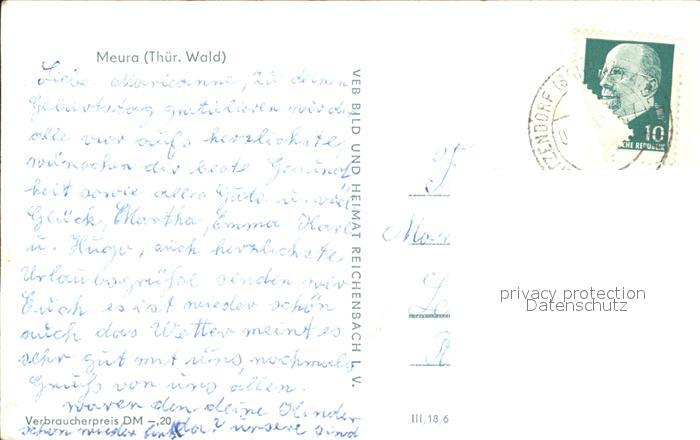 Meura (Thür. Wald)
Liebe Marieanne, zu deinen
Geburtstag gratulieren wir dir
alle vier aufs herzlichste,
wünschen dir beste Gesund
heit sowie alles Gute u. viel
Glück, Martha, Emma Karl
u. Hugo, auch herzlichste
Urlaubsgrüße senden wir
Euch es ist wieder schön
auch das Wetter meint es
sehr gut mit uns, nochmals
Gruß von uns allen.
waren den deine Kinder
Verbraucherpreis DM –,20
schon wieder da? unsere sind
VEB BILD UND HEIMAT REICHENBACH I. V.
III/18/6
10
privacy protection
Datenschutz